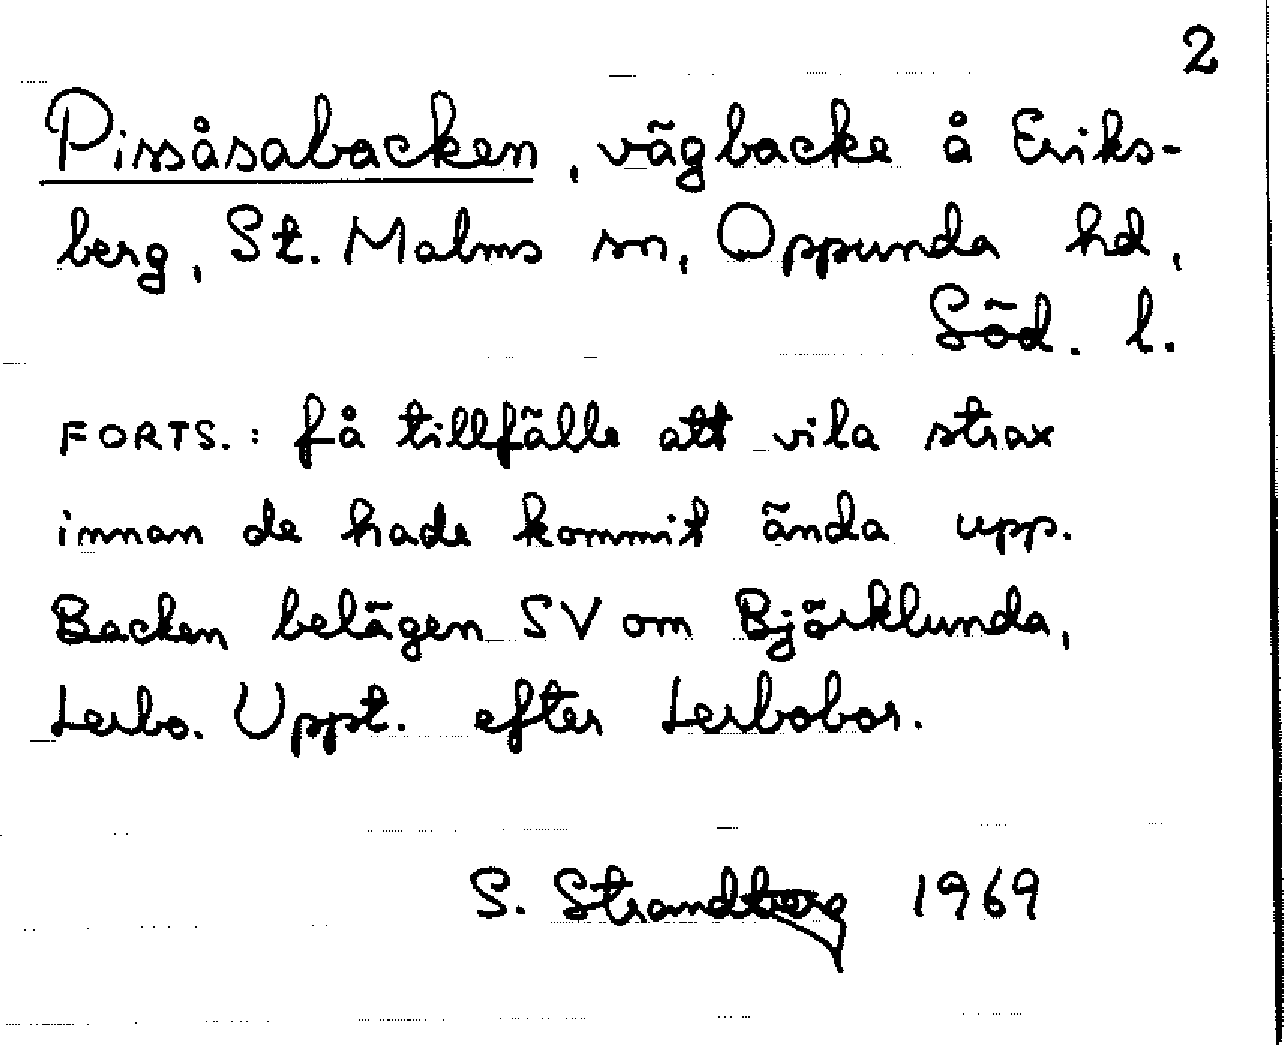 2
Pissåsabacken, vägbacke å Eriks-
berg, St. Malms sn, Oppunda hd,
Söd. l.
FORTS.: få tillfälle att vila strax
innan de hade kommit ända upp.
Backen belägen SV om Björklunda,
Lerbo. Uppt. efter Lerbobor.
S. Strandberg 1969